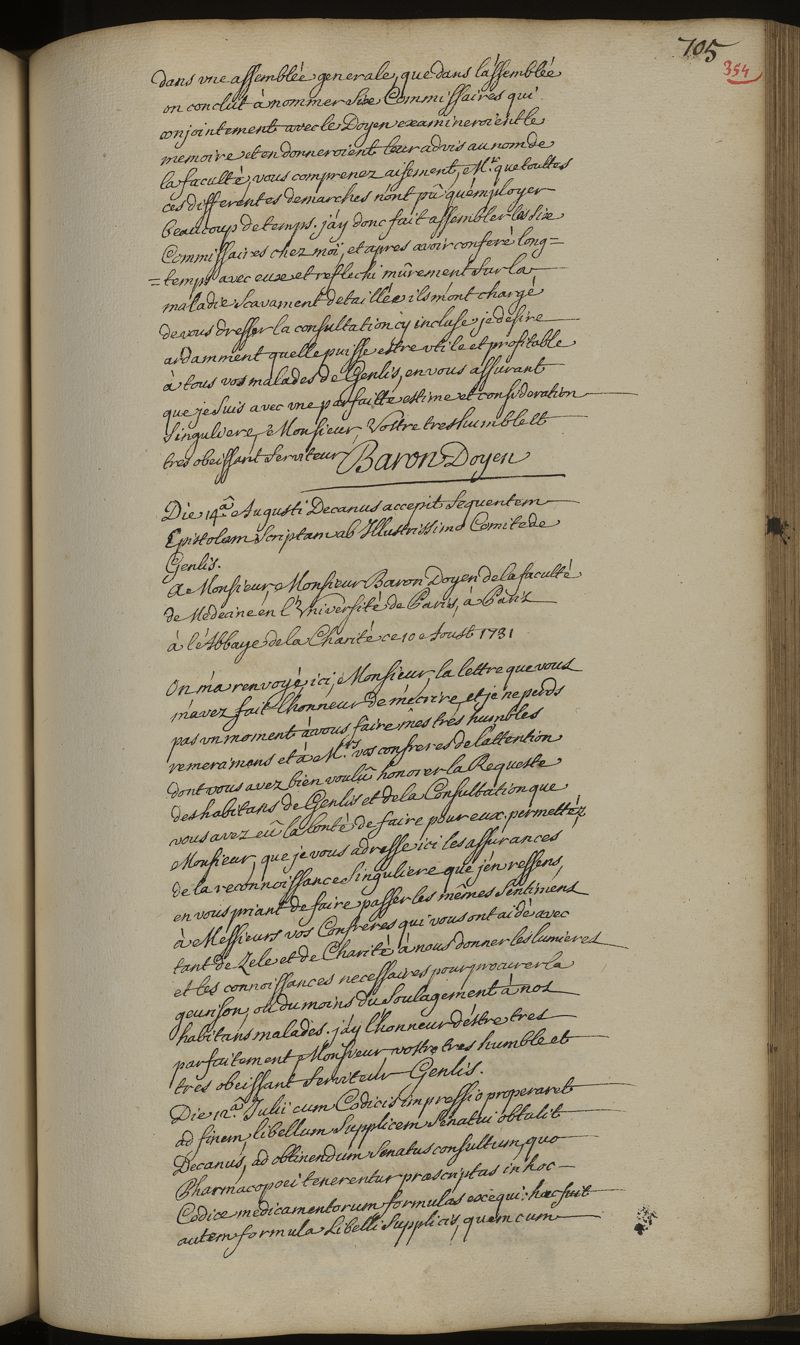 705
354
dans vne assemblée generale, que dans lassemblée
on conclut à nommer Six Commissaires qui
conjointement avec le Doyen examineroient le
memoire et en donneroient leur advis au nom de
la faculté, vous comprenez aisement, Mr. que touttes
ces differentes demarches n'ont pû qu'employer
beaucoup de temps. j'ay donc fait assembler les Six
Commissaires chez moi, et apres avoir conferé long=
=temps avec eux et reflechi mûrement sur la
maladie scavament detaillée ils m'ont chargé
de vous dresser la consultation cy incluse, je desire
ardamment quelle puisse estre vtile et profitable
à tous vos malades de Genlis, en vous assurant
que je suis avec vne parfaitte estime et consideration
Singuliere, Monsieur, Vostre tres humble et
tres obeissant Serviteur Baron Doyen
Die 14a. Augusti Decanus accepit Sequentem
Epistolam Scriptam ab Illustrissimo Comite de
Genlis.
A Monsieur, Monsieur Baron Doyen de la faculté
de Medecine en l'Vniversité de Paris, à Paris
à l'Abbaye de la Charité ce 10e Aoust 1731
On m'a renvoyé ici, Monsieur, la lettre que vous
m'avez fait l'honneur de m'écrire, et je ne perds
pas vn moment à vous faire mes tres humbles
remeramens et à Mrs. vos confreres de l'attention
dont vous avez bien voulû honorer la Requeste
des habitans de Genlis et de la Consultation que
vous avez eû la bonté de faire pour eux. permettéz
Monsieur, que je vous adresse ici les assurances
de la reconnoissance Singuliere que j'en ressens,
en vous priant de faire passer les mêmes Sentimens
à Messieurs vos Confreres qui vous ont aidé avec
tant de Zele et de Charité à nous donner les lumieres
et les connoissances necessaires pour procurer la
geurison, ou du moins du Soulagement à nos
habitans malades. j'ay l'honneur d'éstre tres
parfaitement Monsieur, vostre tres humble et
tres obeissant Serviteur Genlis.
Die 12a. Julii cum Codicis impressio properaret
ad finem, libellum Supplicem Senatui obtulit
Decanus, ad obtinendum Senatusconsultum, quo
Pharmacopoei tenerentur præscriptas in hoc
Codice medicamentorum formulas exequi: hæc fuit
autem formula Libelli Supplicis, quem cum